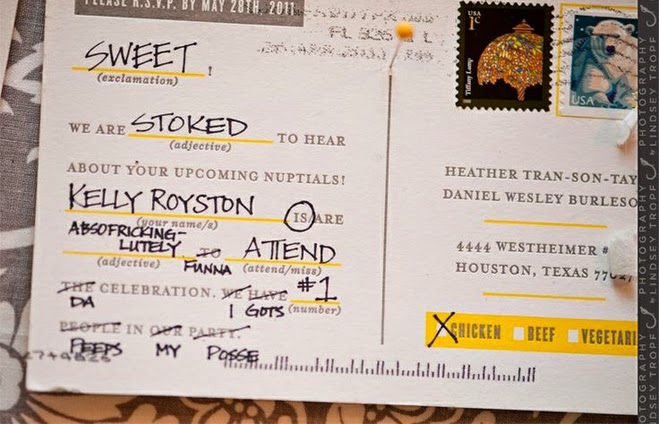 PLEASE R.S.V.P. BY MAY 28TH, 2011
SWEET !
(exclamation)
WE ARE STOKED TO HEAR
(adjective)
ABOUT YOUR UPCOMING NUPTIALS!
KELLY ROYSTON IS/ARE
(your name/s)
ABSOFRICKING-
LUTELY TO ATTEND
(adjective) FUNNA (attend/miss)
THE CELEBRATION. WE HAVE #1
DA I GOTS (number)
PEOPLE IN OUR PARTY.
PEEPS MY POSSE
1c
Tiffany Lamp
USA
USA
HEATHER TRAN-SON-TAY
DANIEL WESLEY BURLESO
4444 WESTHEIMER #
HOUSTON, TEXAS
X CHICKEN BEEF VEGETARI
PHOTOGRAPHY by LINDSEY TROPF
PHOTOGRAPHY by LINDSEY TROPF